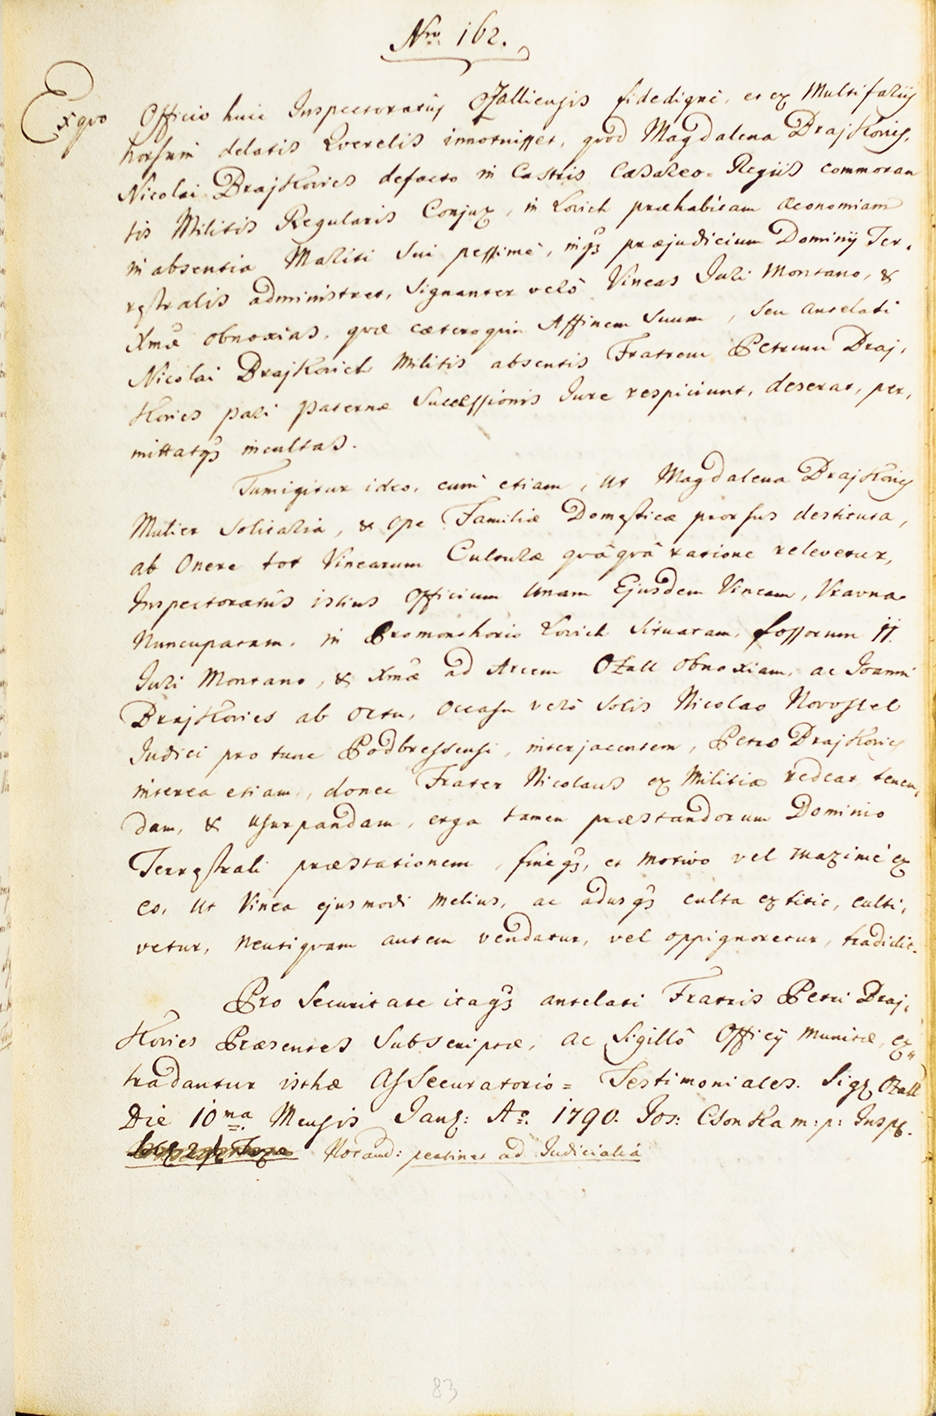 Nro 162.
Exquo Officio huic Inspectoratus Ozalliensis fide digne, et ex Multifariis
horsum delatis Querelis innotuisset, quod Magdalena Drajkovics,
Nicolai Drajkovics defacto in Castris Cæsareo-Regiis commoran
tis Militis Regularis Conjux, in Lovich præhabitam Æconomiam
in absentia Mariti sui pessime, inqs præjudicium Dominii Ter,
restralis administret, signanter verò Vineas Juri Montano, &
Xmæ obnoxias, quæ cæteroquin Affinem Suum, seu antelati
Nicolai Drajkovich Militis absentis Fratrem Petrum Draj,
kovics pari paternæ Successionis Jure respiciunt, deserat, per,
mittatqs incultas.
Tumigitur ideo, cum etiam, ut Magdalena Drajkovics
Mulier Solitaria, & ope Familiæ Domesticæ prorsus destituta,
ab Onere tot Vinearum Culturæ quâquâ ratione relevetur,
Inspectoratûs istius Officium Unam Ejusdem Vineam, Vravna
Nuncupatam, in Promonthorio Lovich situatam, fossorum 11
Juri Montano, & Xmæ ad Arcem Ozall obnoxiam, ac Joanni
Drajkovics ab ortu, occasu verò Solis Nicolao Novossel
Judici pro tunc Podbressensi, interjacentem, Petro Drajkovics
interea etiam, donec Frater Nicolaus ex Militia redeat tenen,
dam, & usurpandam, erga tamen præstandorum Dominio
Terrestrali præstationem, fineqs, et motivo vel maxime ex
eo, ut Vinea ejusmodi melius, ac adusqs culta extitit, culti,
vetur, neutiquam autem vendatur, vel oppignoretur, tradidit.
Pro Securitate itaqs antelati Fratris Petri Draj,
kovics Præsentes Subscriptæ, ac Sigillô Officij munitæ, ex,,
tradantur isthæ Assecuratorio = Testimoniales. Sig. Ozall
Die 10ma Mensis Janr: Ao. 1790. Jos: Csonka m:p: Insp.
Notand: pertinet ad Judicialia
83